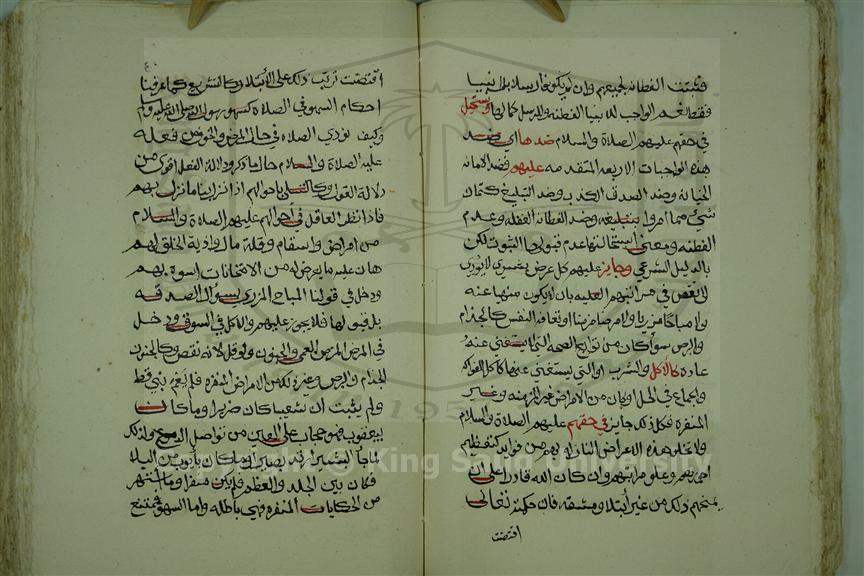 فثبتت الفطانة لجميعهم وان لم يكونوا رسلا بل انبيا
فقط نعم الواجب للانبيا الفطنة وللرسل كمالها ويستحيل
في حقهم عليهم الصلاة والسلام ضدها اي ضد
هذه الواجبات الاربعة المتقدمه عليهم فضد الامانه
الخيانه وضد الصدق الكذب وضد التبليغ كتمان
شيء مما امروا بتبليغه وضد الفطانه الغفله وعدم
الفطنه ومعنى استحالتها عدم قبولها الثبوت لكن
بالدليل الشرعي وجايز عليهم كل عرض بشري لا يودي
الى نقص في مراتبهم العليه بان لا يكون منهيا عنه
ولا مباحا مزريا ولا مرضا مزمنا او تعافه النفس كالجذام
والبرص سوا كان من توابع الصحه التي لا يستغنى عنه
عاده كالاكل والشرب او التي يستغنى عنها كاكل الفواكه
والجماع في الحل او كان من الامراض غير المزمنه وغير
المنفره فكل ذلك جايز في حقهم عليهم الصلاة والسلام
ولا تخلو هذه الاعراض النازلة بهم من فوايد كتعظيم
اجورهم وعلو مراتبهم وان كان الله قادرا على ان
يمنحهم ذلك من غير ابتلا ومشقه فان حكمته تعالى
اقتضت
اقتضت ترتب ذلك على الابتلا وكالتشريع كما عرفنا
احكام السهو في الصلاة كسهو رسول الله صلى الله عليه وسلم
وكيف تودى الصلاه في حال المرض والخوف من فعله
عليه الصلاة والسلام حال ما ذكر ودلالة الفعل اقوى من
دلالة القول وكالتسلي باحوالهم اذا نزل بنا ما نزل بهم
فاذا نظر العاقل في احوالهم عليهم الصلاة والسلام
من امراض واسقام وقلة مال واذية الخلق لهم
هان عليه ما يعرض له من الامتحانات اسوه بهم
ودخل في قولنا المباح المزري سوال الصدقه
بل قبولها فلا يجوز عليهم والاكل في السوق ودخل
في المرض المزمن العمى والجنون ولو قل لانه نقص وكالجنون
الجذام والبرص وغير ذلك من الامراض المنفره فلم يعم نبي قط
ولم يثبت ان شعيبا كان ضريرا وما كان
بيعقوب فهو حجاب على العين من تواصل الدموع ولذلك
لما جا البشير ارتد بصيرا وما كان بايوب من البلا
فكان بين الجلد والعظم فلم يكن منفرا وما اشتهر
من الحكايات المنفره فهي باطله واما السهو فممتنع